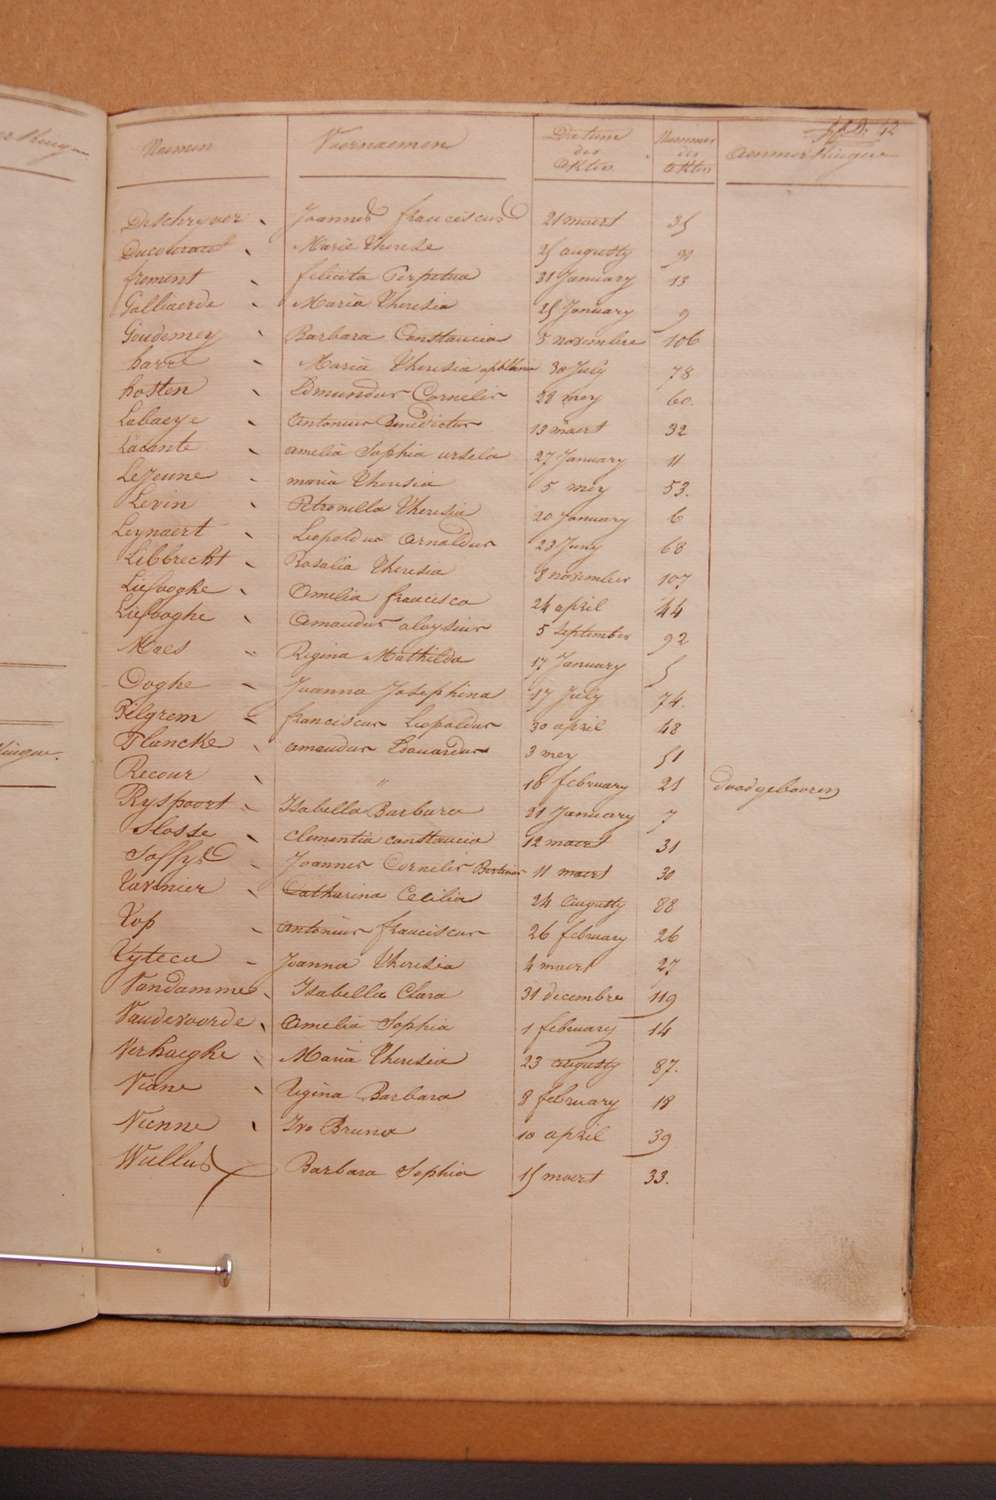 Naemen Voornaemen Datum der Akten Nummer der Akten Aenmerkingen
Deschryver Joannes franciscus 21 maert 35
Marie Therese 25 augusty
froment felicita Perpetua 31 January 13
Galliaerde Maria Theresia 25 January 9
Goudemey Barbara Constancia 5 novembre 106
harre Maria Theresia 30 July 78
hosten Edmundus Cornelis 28 mey 60.
Labaeye antonius Benedictus 13 maert 32
Lacante amelia Sophia ursela 27 January 11
LeJeune maria Theresia 5 mey 53.
Levin Petronella Theresia 20 January 6
Leynaert Leopoldus arnoldus 23 Juny 68
Libbrecht Rosalia Theresia 8 november 107
Liefooghe Amelia francisca 24 april 44
Liefooghe Amandus aloysius 5 september 92
Maes Regina Mathilda 17 January 5
Ooghe Joanna Josephina 17 July 74.
Pilgrem franciscus Leopoldus 30 april 48
Plancke amandus Edouardus 3 mey 51
Recour " 18 february 21 doodgebooren
Ryspoort Isabella Barbara 21 January 7
Slosse Clementia constancia 12 maert 31
Joannes Cornelis 11 maert 30
Tavernier Catharina Cecilia 24 augusty 88
Top antonius franciscus 26 february 26
Joanna Theresia 4 maert 27
Vandamme Isabella Clara 31 decembre 119
Vandevoorde Amelia Sophia 1 february 14
Verhaeghe Maria Theresia 23 augusty 87.
Viane Regina Barbara 8 february 18
Vienne Ivo Bruno 10 april 39
Wullus Barbara Sophia 15 maert 33.